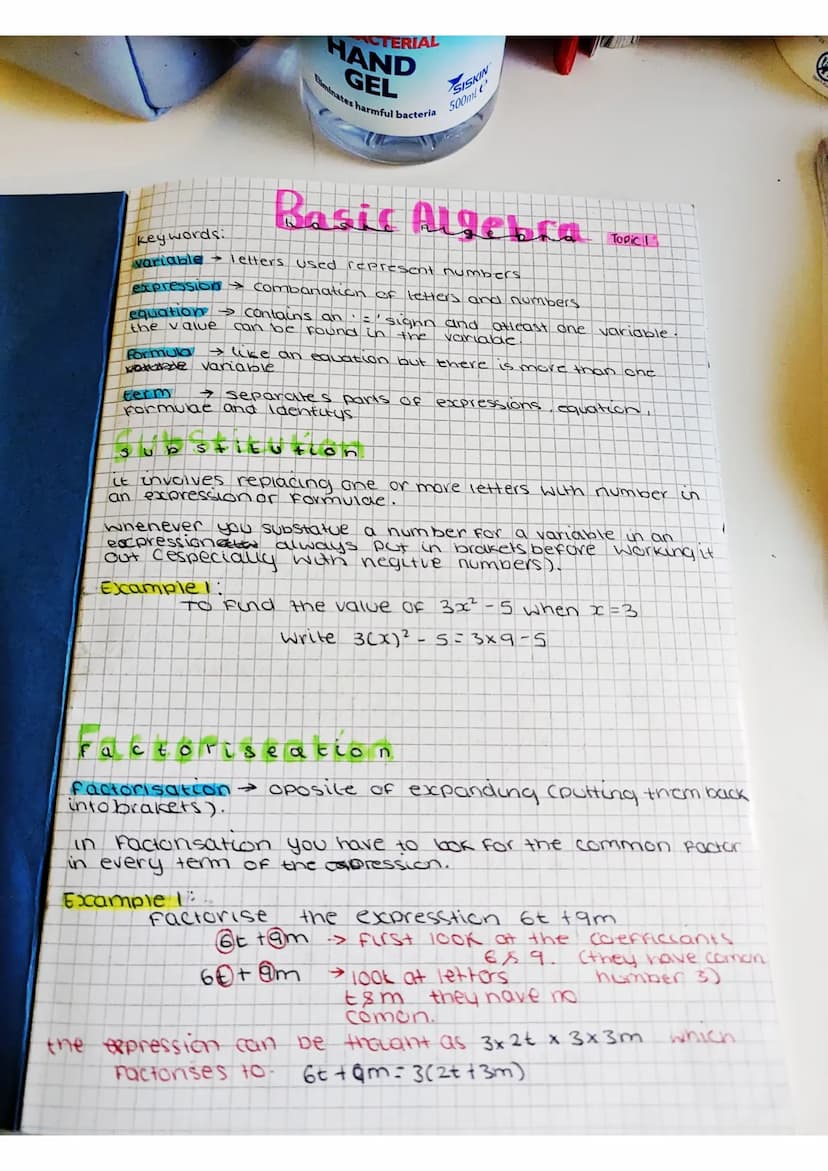 ACTERIAL
HAND
GEL
Eliminates harmful bacteria
SISKIN
500ml e
Basic Algebra Topic 1
Basic Algebra
Keywords:
variable → letters used represent numbers
expression → combanation of letters and numbers
equation → contains an '=' signn and atleast one variable.
the value can be found in the variable.
Formula → like an equation but there is more than one
variable
term → separates parts of expressions, equation,
Formulae and Identitys
Substitution
substitution
it involves replacing one or more letters with number in
an expression or Formulae.
whenever you substatue a number for a variable in an
expression always put in brakets before working it
out (especially with negitive numbers).
Example 1:
To Find the value of 3x² - 5 when x = 3
write 3(x)² - 5 = 3 x 9 - 5
Factoriseation
Factorisation → oposite of expanding (putting them back
into brakets).
in Factorisation you have to look for the common factor
in every term of the expression.
Example 1:
Factorise the expresstion 6t + 9m
6t + 9m → First look at the coefficiants
6 & 9. (they have comon
6t + 9m → look at letters number 3)
t & m they have no
comon.
the expression can be thought as 3 x 2t x 3 x 3m which
Factorises to 6t + 9m = 3(2t + 3m)